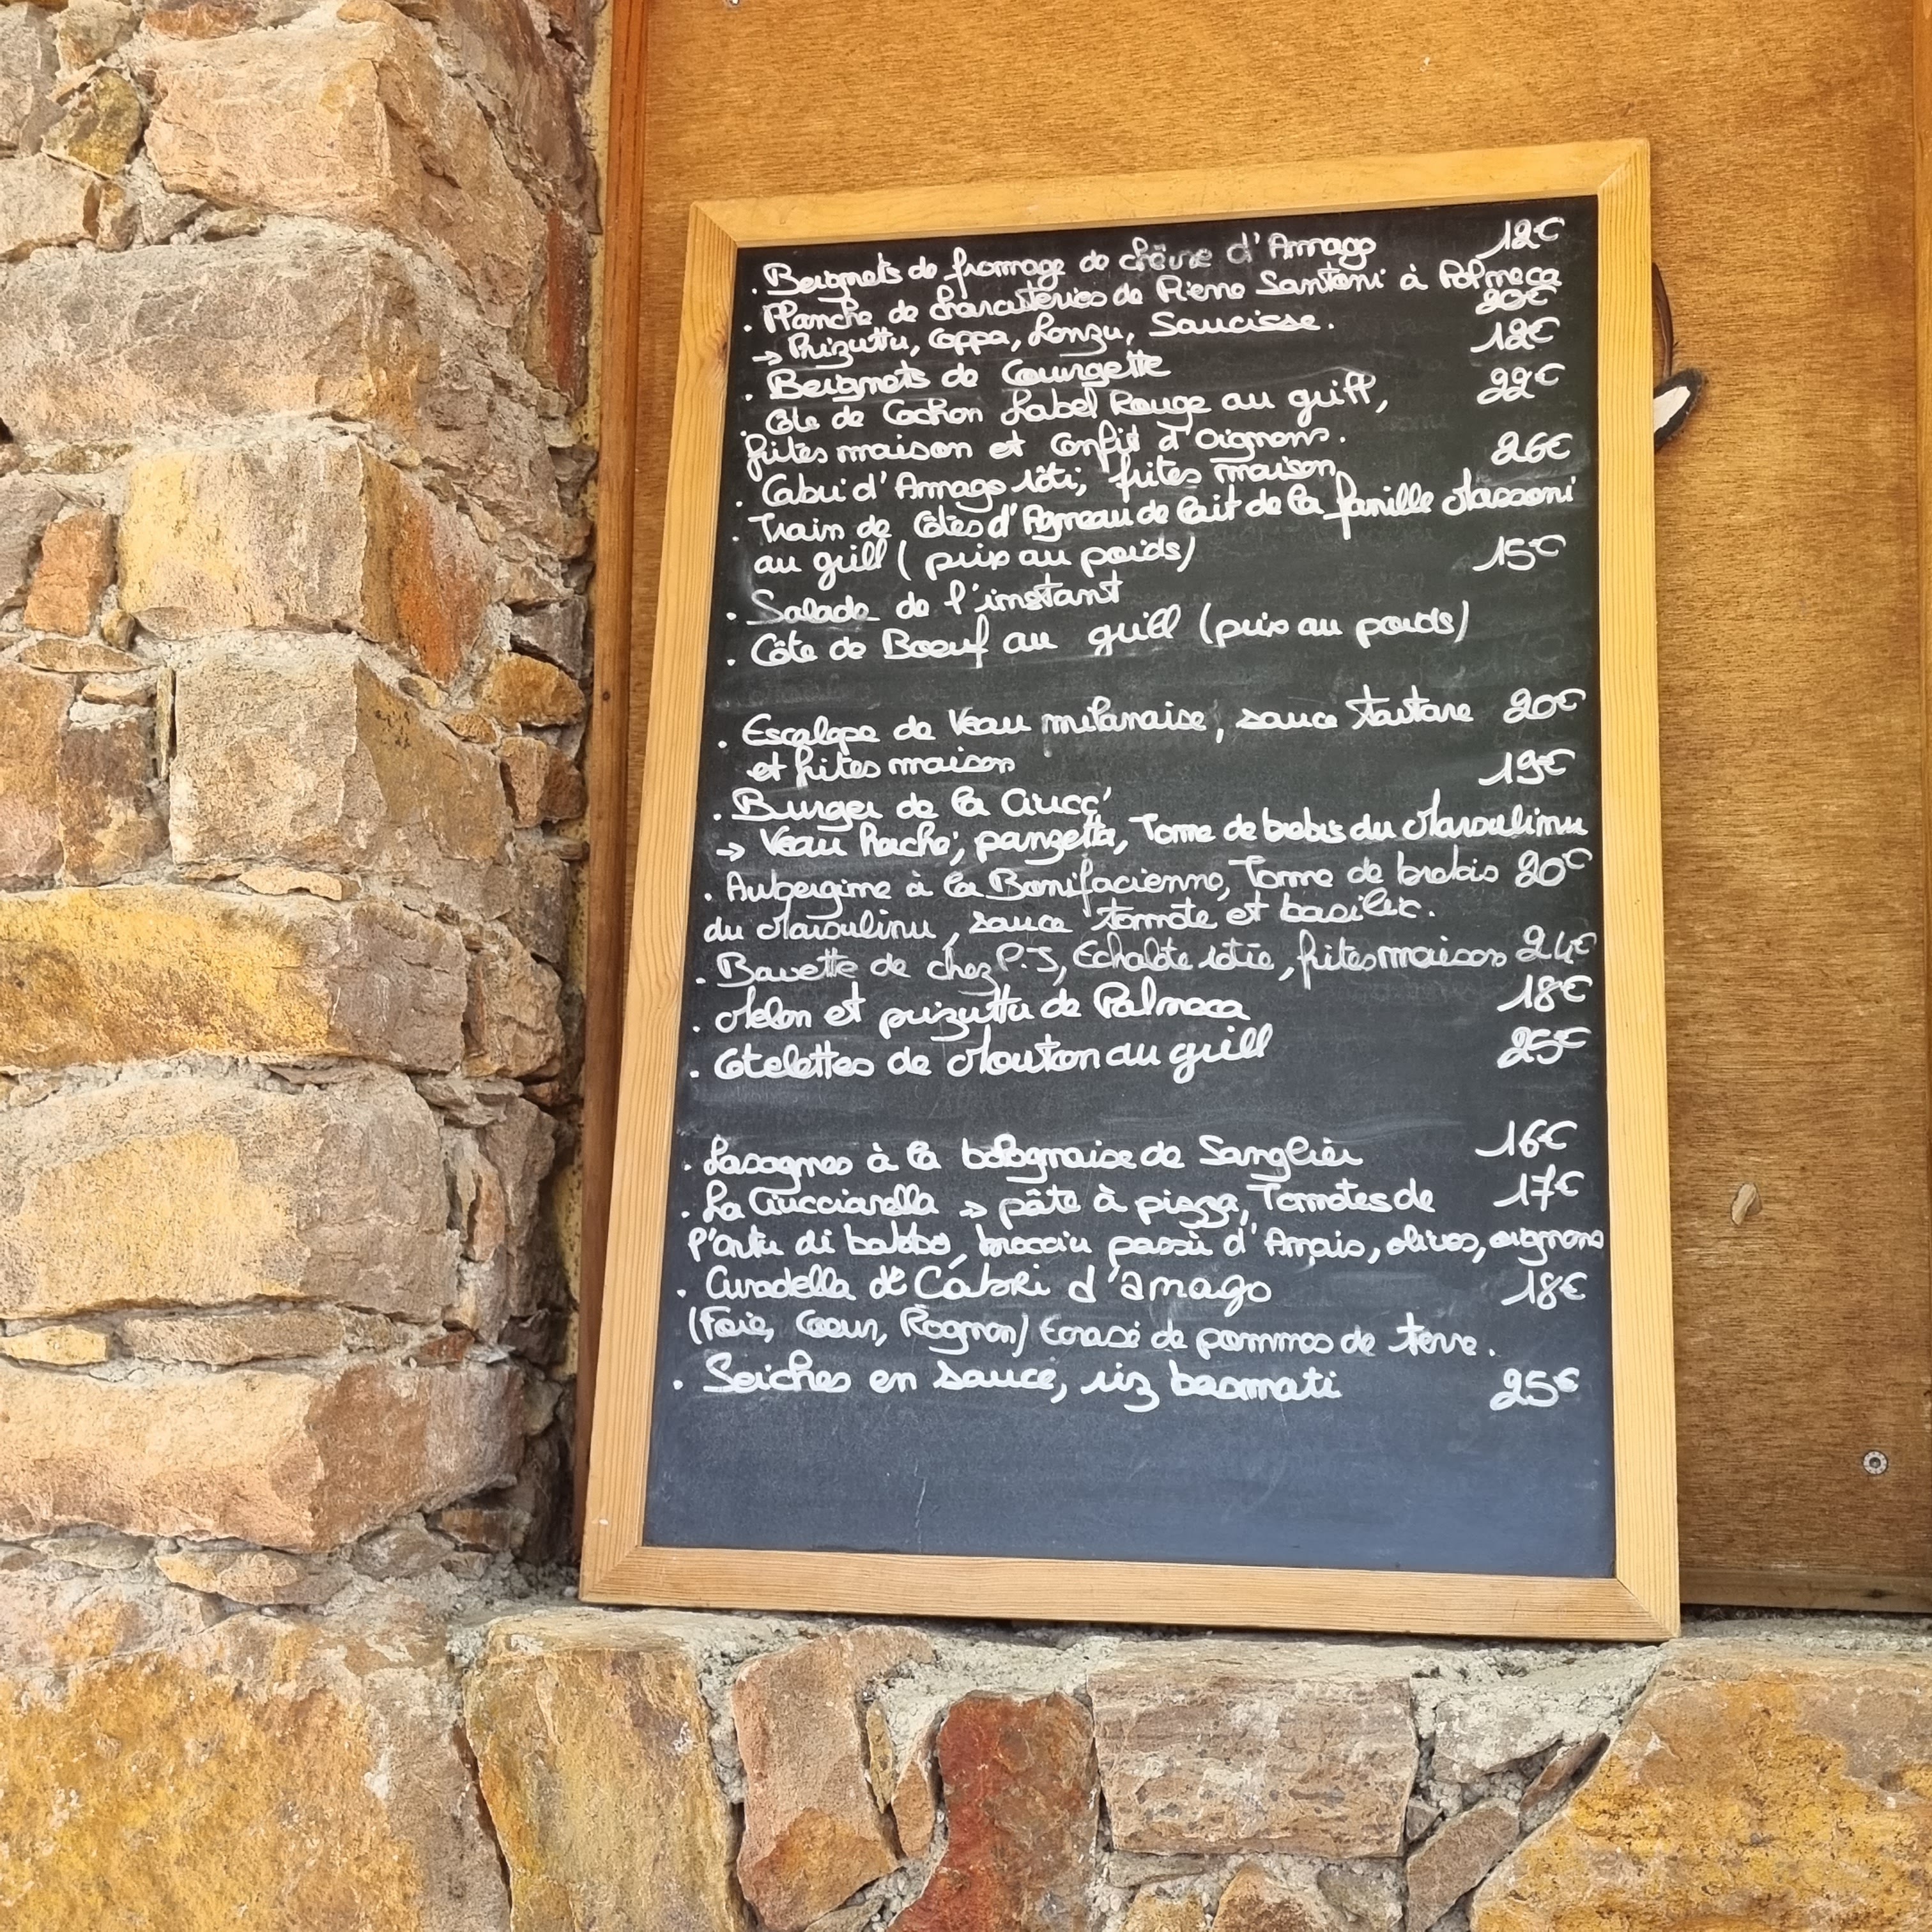 . Beignets de fromage de chèvre d'Arnago 12€
. Planche de charcuteries de Pierre Santoni à Palneca 20€
→ Prizuttu, Coppa, Lonzu, Saucisse.
. Beignets de Courgette 12€
. Côte de Cochon Label Rouge au grill, 22€
frites maison et confit d'oignons.
. Cabri d'Arnago rôti, frites maison 26€
. Train de Côtes d'Agneau de lait de la famille Massoni
au grill (prix au poids)
. Salade de l'instant 15€
. Côte de Boeuf au grill (prix au poids)
. Escalope de Veau milanaise, sauce tartare 20€
et frites maison
. Burger de la Ciucc' 19€
→ Veau haché, panzetta, Tome de brebis du Maroulinu
. Aubergine à la Bonifacienne, Tome de brebis 20€
du Maroulinu, sauce tomate et basilic.
. Bavette de chez P.J, Echalote rôtie, frites maison 24€
. Melon et prizuttu de Palneca 18€
. Cotelettes de Mouton au grill 25€
. Lasagnes à la bolognaise de Sanglier 16€
. La Ciucciarella → pâte à pizza, Tomates de 17€
l'ortu di babbo, brocciu passu d'Anaïs, olives, oignons
. Curadella de Cabri d'arnago 18€
(Foie, Coeur, Rognon) Ecrasé de pommes de terre.
. Seiches en sauce, riz basmati 25€